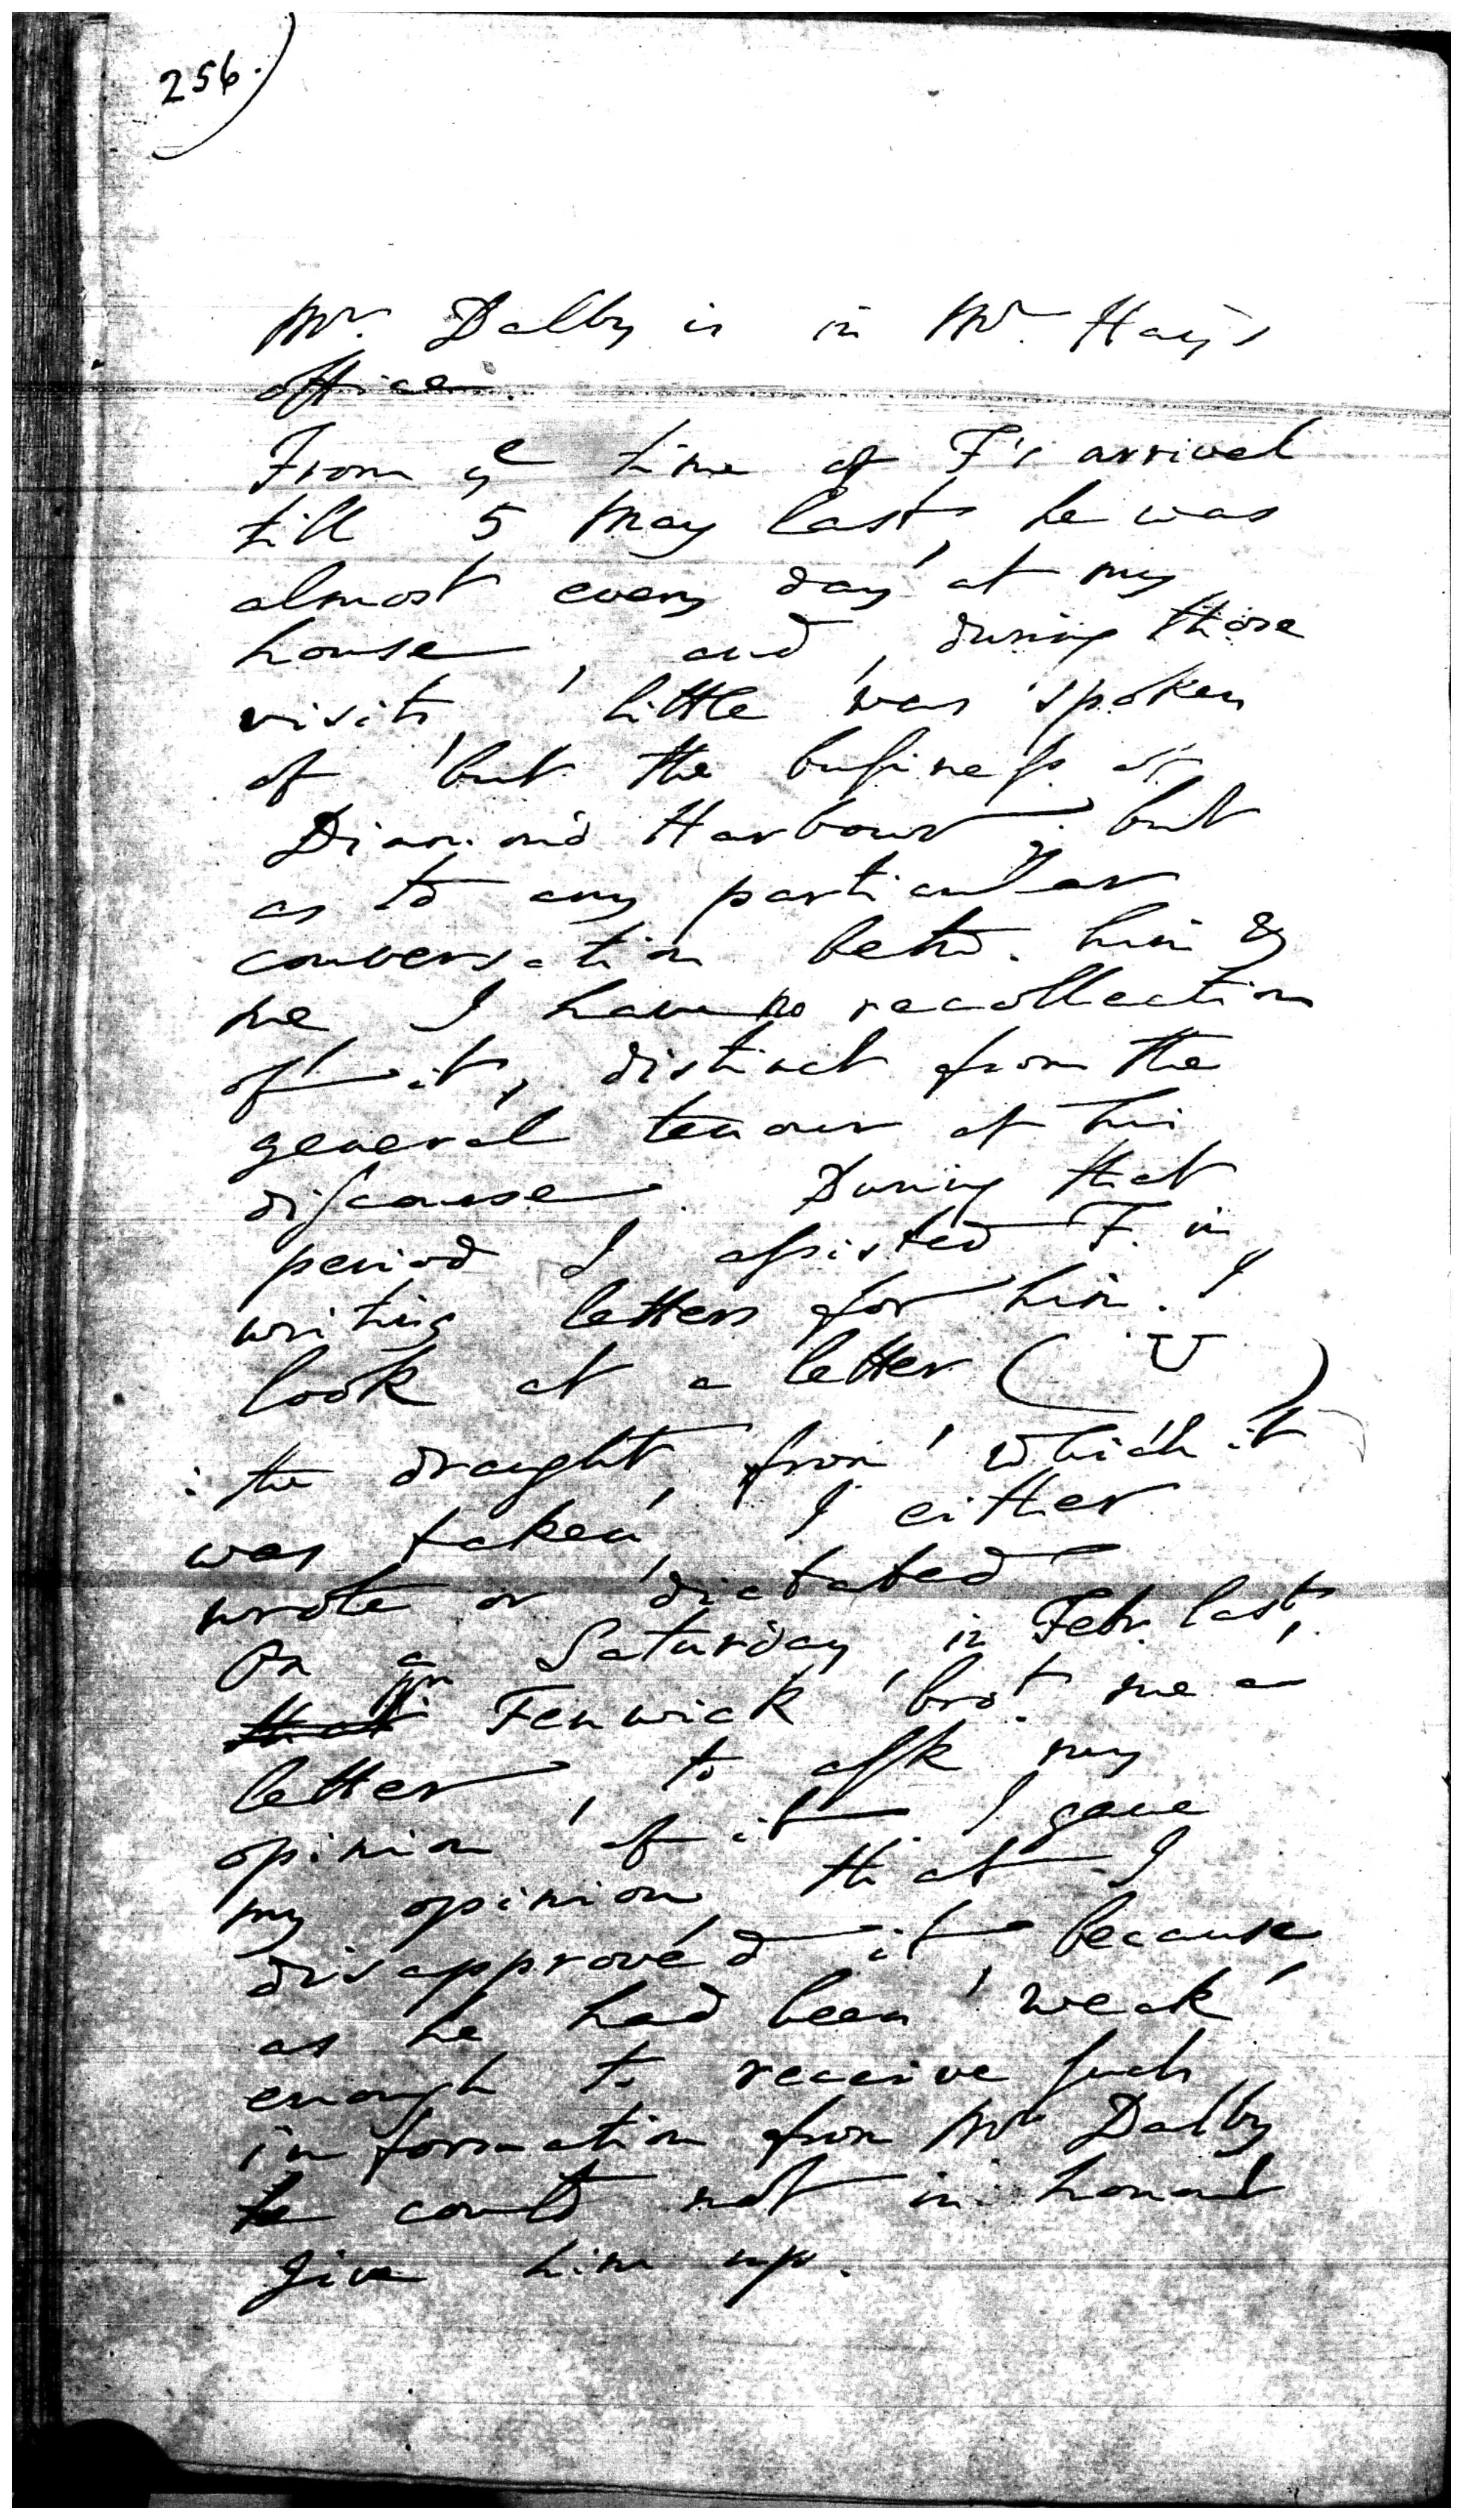 256.
Mr. Dalby is in Mr. Hay's
office.
From ye time of F's arrival
till 5 May last, he was
almost every day at my
house, and, during those
visits, little was spoken
of but the business of
Diamond Harbour; but
as to any particular
conversation betw. him &
me, I have no recollection
of it, distinct from the
general tenour of his
discourse. During that
period I assisted F. in
writing letters for him. I
look at a letter ( U )
: the draught, from which it
was taken, I either
wrote or dictated
On a Saturday in Febr. last,
Fenwick bro't me a
letter, to ask my
opinion of it. I gave
my opinion, that I
disapproved it, because,
as he had been weak
enough to receive such
information from Mr Dalby
he could not in honour
give him up.